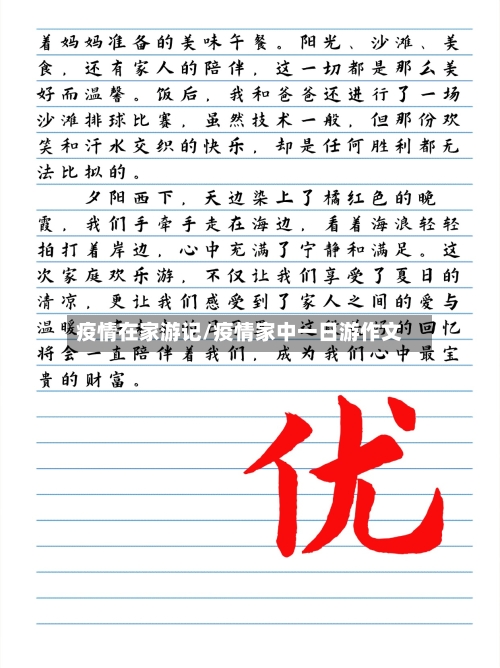 着妈妈准备的美味午餐。阳光、沙滩、美
食，还有家人的陪伴，这一切都是那么美
好而温馨。饭后，我和爸爸还进行了一场
沙滩排球比赛，虽然技术一般，但那份欢
笑和汗水交织的快乐，却是任何胜利都无
法比拟的。
夕阳西下，天边染上了橘红色的晚
霞，我们手牵手走在海边，看着海浪轻轻
拍打着岸边，心中充满了宁静和满足。这
次家庭欢乐游，不仅让我们享受了夏日的
清凉，更让我们感受到了家人之间的爱与
温暖
的回忆
疫情在家游记/疫情家中一日游作文
将会一直陪伴着我们，成为我们心中最宝
贵的财富。
优